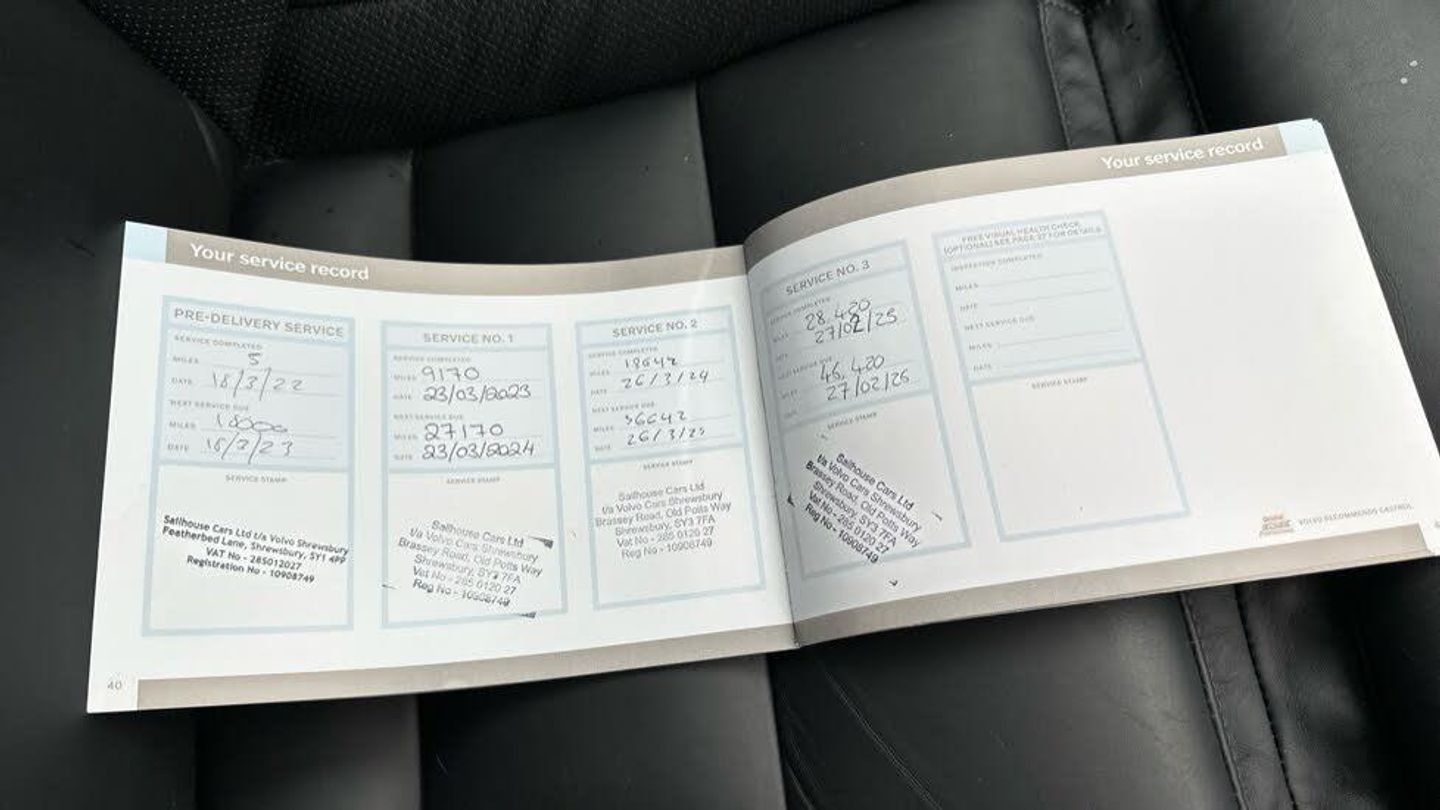 Your service record
PRE-DELIVERY SERVICE
SERVICE COMPLETED
MILES 5
DATE 18/3/22
NEXT SERVICE DUE
MILES 18000
DATE 18/3/23
SERVICE STAMP
Sailhouse Cars Ltd t/a Volvo Shrewsbury
Featherbed Lane, Shrewsbury, SY1 4PP
VAT No - 285012027
Registration No - 10908749
40
SERVICE NO. 1
SERVICE COMPLETED
MILES 9170
DATE 23/03/2023
NEXT SERVICE DUE
MILES 27170
DATE 23/03/2024
SERVICE STAMP
Sailhouse Cars Ltd
t/a Volvo Cars Shrewsbury
Brassey Road, Old Potts Way
Shrewsbury, SY3 7FA
Vat No - 285 0120 27
Reg No - 10908749
SERVICE NO. 2
SERVICE COMPLETED
MILES 18642
DATE 26/3/24
NEXT SERVICE DUE
MILES 36642
DATE 26/3/25
SERVICE STAMP
Sailhouse Cars Ltd
t/a Volvo Cars Shrewsbury
Brassey Road, Old Potts Way
Shrewsbury, SY3 7FA
Vat No - 285 0120 27
Reg No - 10908749
Your service record
SERVICE NO. 3
SERVICE COMPLETED
MILES 28,420
DATE 27/02/25
NEXT SERVICE DUE
MILES 46,420
DATE 27/02/26
SERVICE STAMP
Sailhouse Cars Ltd
t/a Volvo Cars Shrewsbury
Brassey Road, Old Potts Way
Shrewsbury, SY3 7FA
Vat No - 285 0120 27
Reg No - 10908749
FREE VISUAL HEALTH CHECK
(OPTIONAL) SEE PAGE 37 FOR DETAILS
INSPECTION COMPLETED
MILES
DATE
NEXT SERVICE DUE
MILES
DATE
SERVICE STAMP
VOLVO RECOMMENDS CASTROL